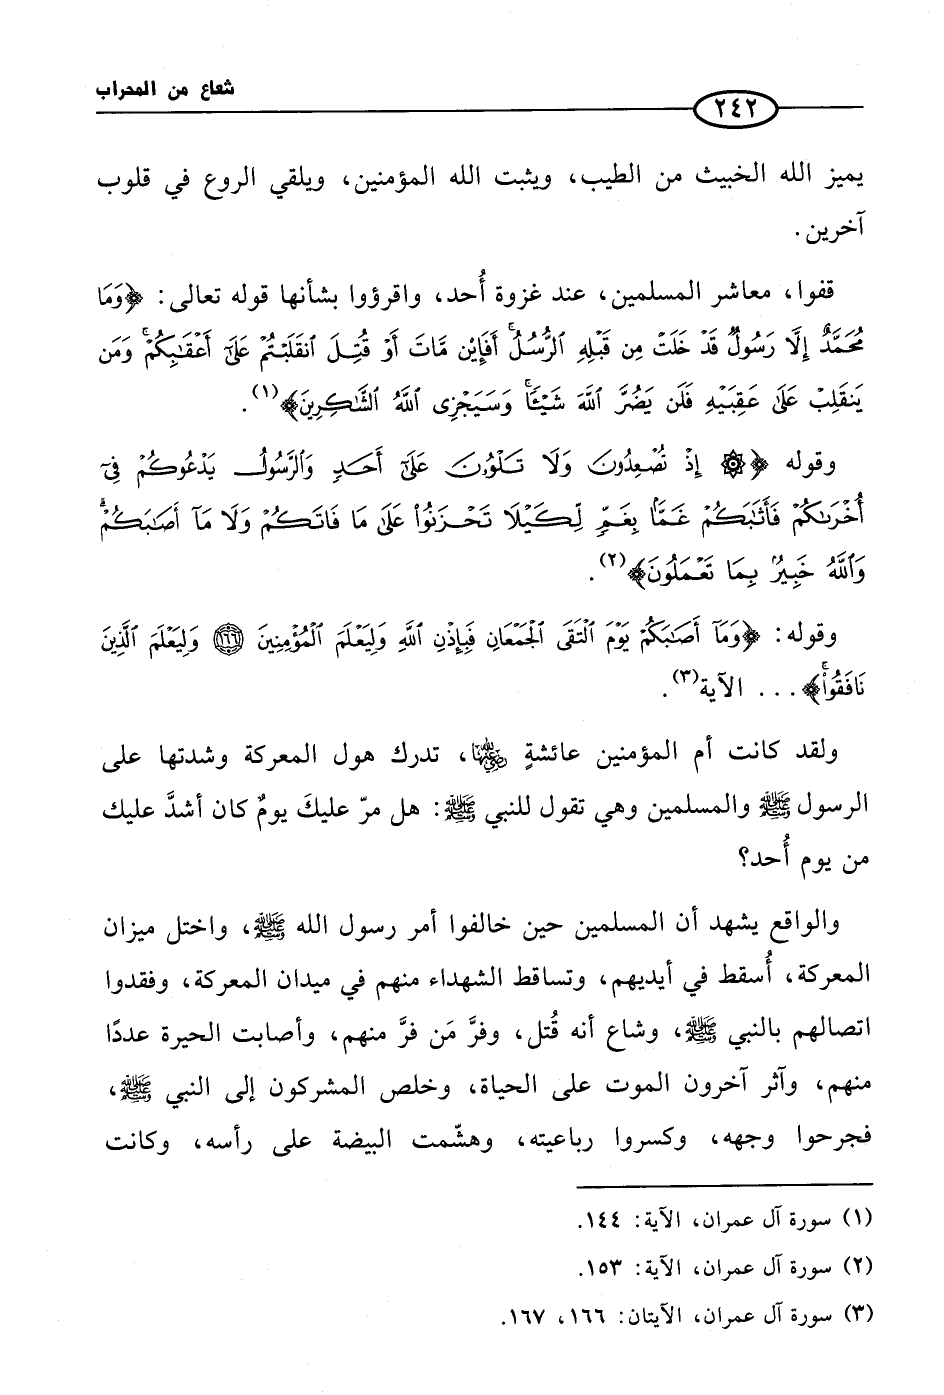 شعاع من المحراب
٢٤٢
يميز الله الخبيث من الطيب، ويثبت الله المؤمنين، ويلقي الروع في قلوب
آخرين.
قفوا، معاشر المسلمين، عند غزوة أُحد، واقرؤوا بشأنها قوله تعالى: ﴿وَمَا
مُحَمَّدٌ إِلَّا رَسُولٌ قَدْ خَلَتْ مِن قَبْلِهِ ٱلرُّسُلُ ۚ أَفَإِيْن مَّاتَ أَوْ قُتِلَ ٱنقَلَبْتُمْ عَلَىٰٓ أَعْقَـٰبِكُمْ ۚ وَمَن
يَنقَلِبْ عَلَىٰ عَقِبَيْهِ فَلَن يَضُرَّ ٱللَّهَ شَيْـًٔا ۗ وَسَيَجْزِى ٱللَّهُ ٱلشَّـٰكِرِينَ﴾(١).
وقوله ﴿۞ إِذْ تُصْعِدُونَ وَلَا تَلْوُۥنَ عَلَىٰٓ أَحَدٍ وَٱلرَّسُولُ يَدْعُوكُمْ فِىٓ
أُخْرَىٰكُمْ فَأَثَـٰبَكُمْ غَمًّۢا بِغَمٍّ لِّكَيْلَا تَحْزَنُوا۟ عَلَىٰ مَا فَاتَكُمْ وَلَا مَآ أَصَـٰبَكُمْ ۗ
وَٱللَّهُ خَبِيرٌۢ بِمَا تَعْمَلُونَ﴾(٢).
وقوله: ﴿وَمَآ أَصَـٰبَكُمْ يَوْمَ ٱلْتَقَى ٱلْجَمْعَانِ فَبِإِذْنِ ٱللَّهِ وَلِيَعْلَمَ ٱلْمُؤْمِنِينَ ١٦٦ وَلِيَعْلَمَ ٱلَّذِينَ
نَافَقُوا۟ ۚ﴾... الآية(٣).
ولقد كانت أم المؤمنين عائشةٍ رضي الله عنها، تدرك هول المعركة وشدتها على
الرسول ﷺ والمسلمين وهي تقول للنبي ﷺ: هل مرّ عليكَ يومٌ كان أشدَّ عليك
من يوم أُحد؟
والواقع يشهد أن المسلمين حين خالفوا أمر رسول الله ﷺ، واختل ميزان
المعركة، أُسقط في أيديهم، وتساقط الشهداء منهم في ميدان المعركة، وفقدوا
اتصالهم بالنبي ﷺ، وشاع أنه قُتل، وفرَّ مَن فرَّ منهم، وأصابت الحيرة عددًا
منهم، وآثر آخرون الموت على الحياة، وخلص المشركون إلى النبي ﷺ،
فجرحوا وجهه، وكسروا رباعيته، وهشّمت البيضة على رأسه، وكانت
(١) سورة آل عمران، الآية: ١٤٤.
(٢) سورة آل عمران، الآية: ١٥٣.
(٣) سورة آل عمران، الآيتان: ١٦٦، ١٦٧.